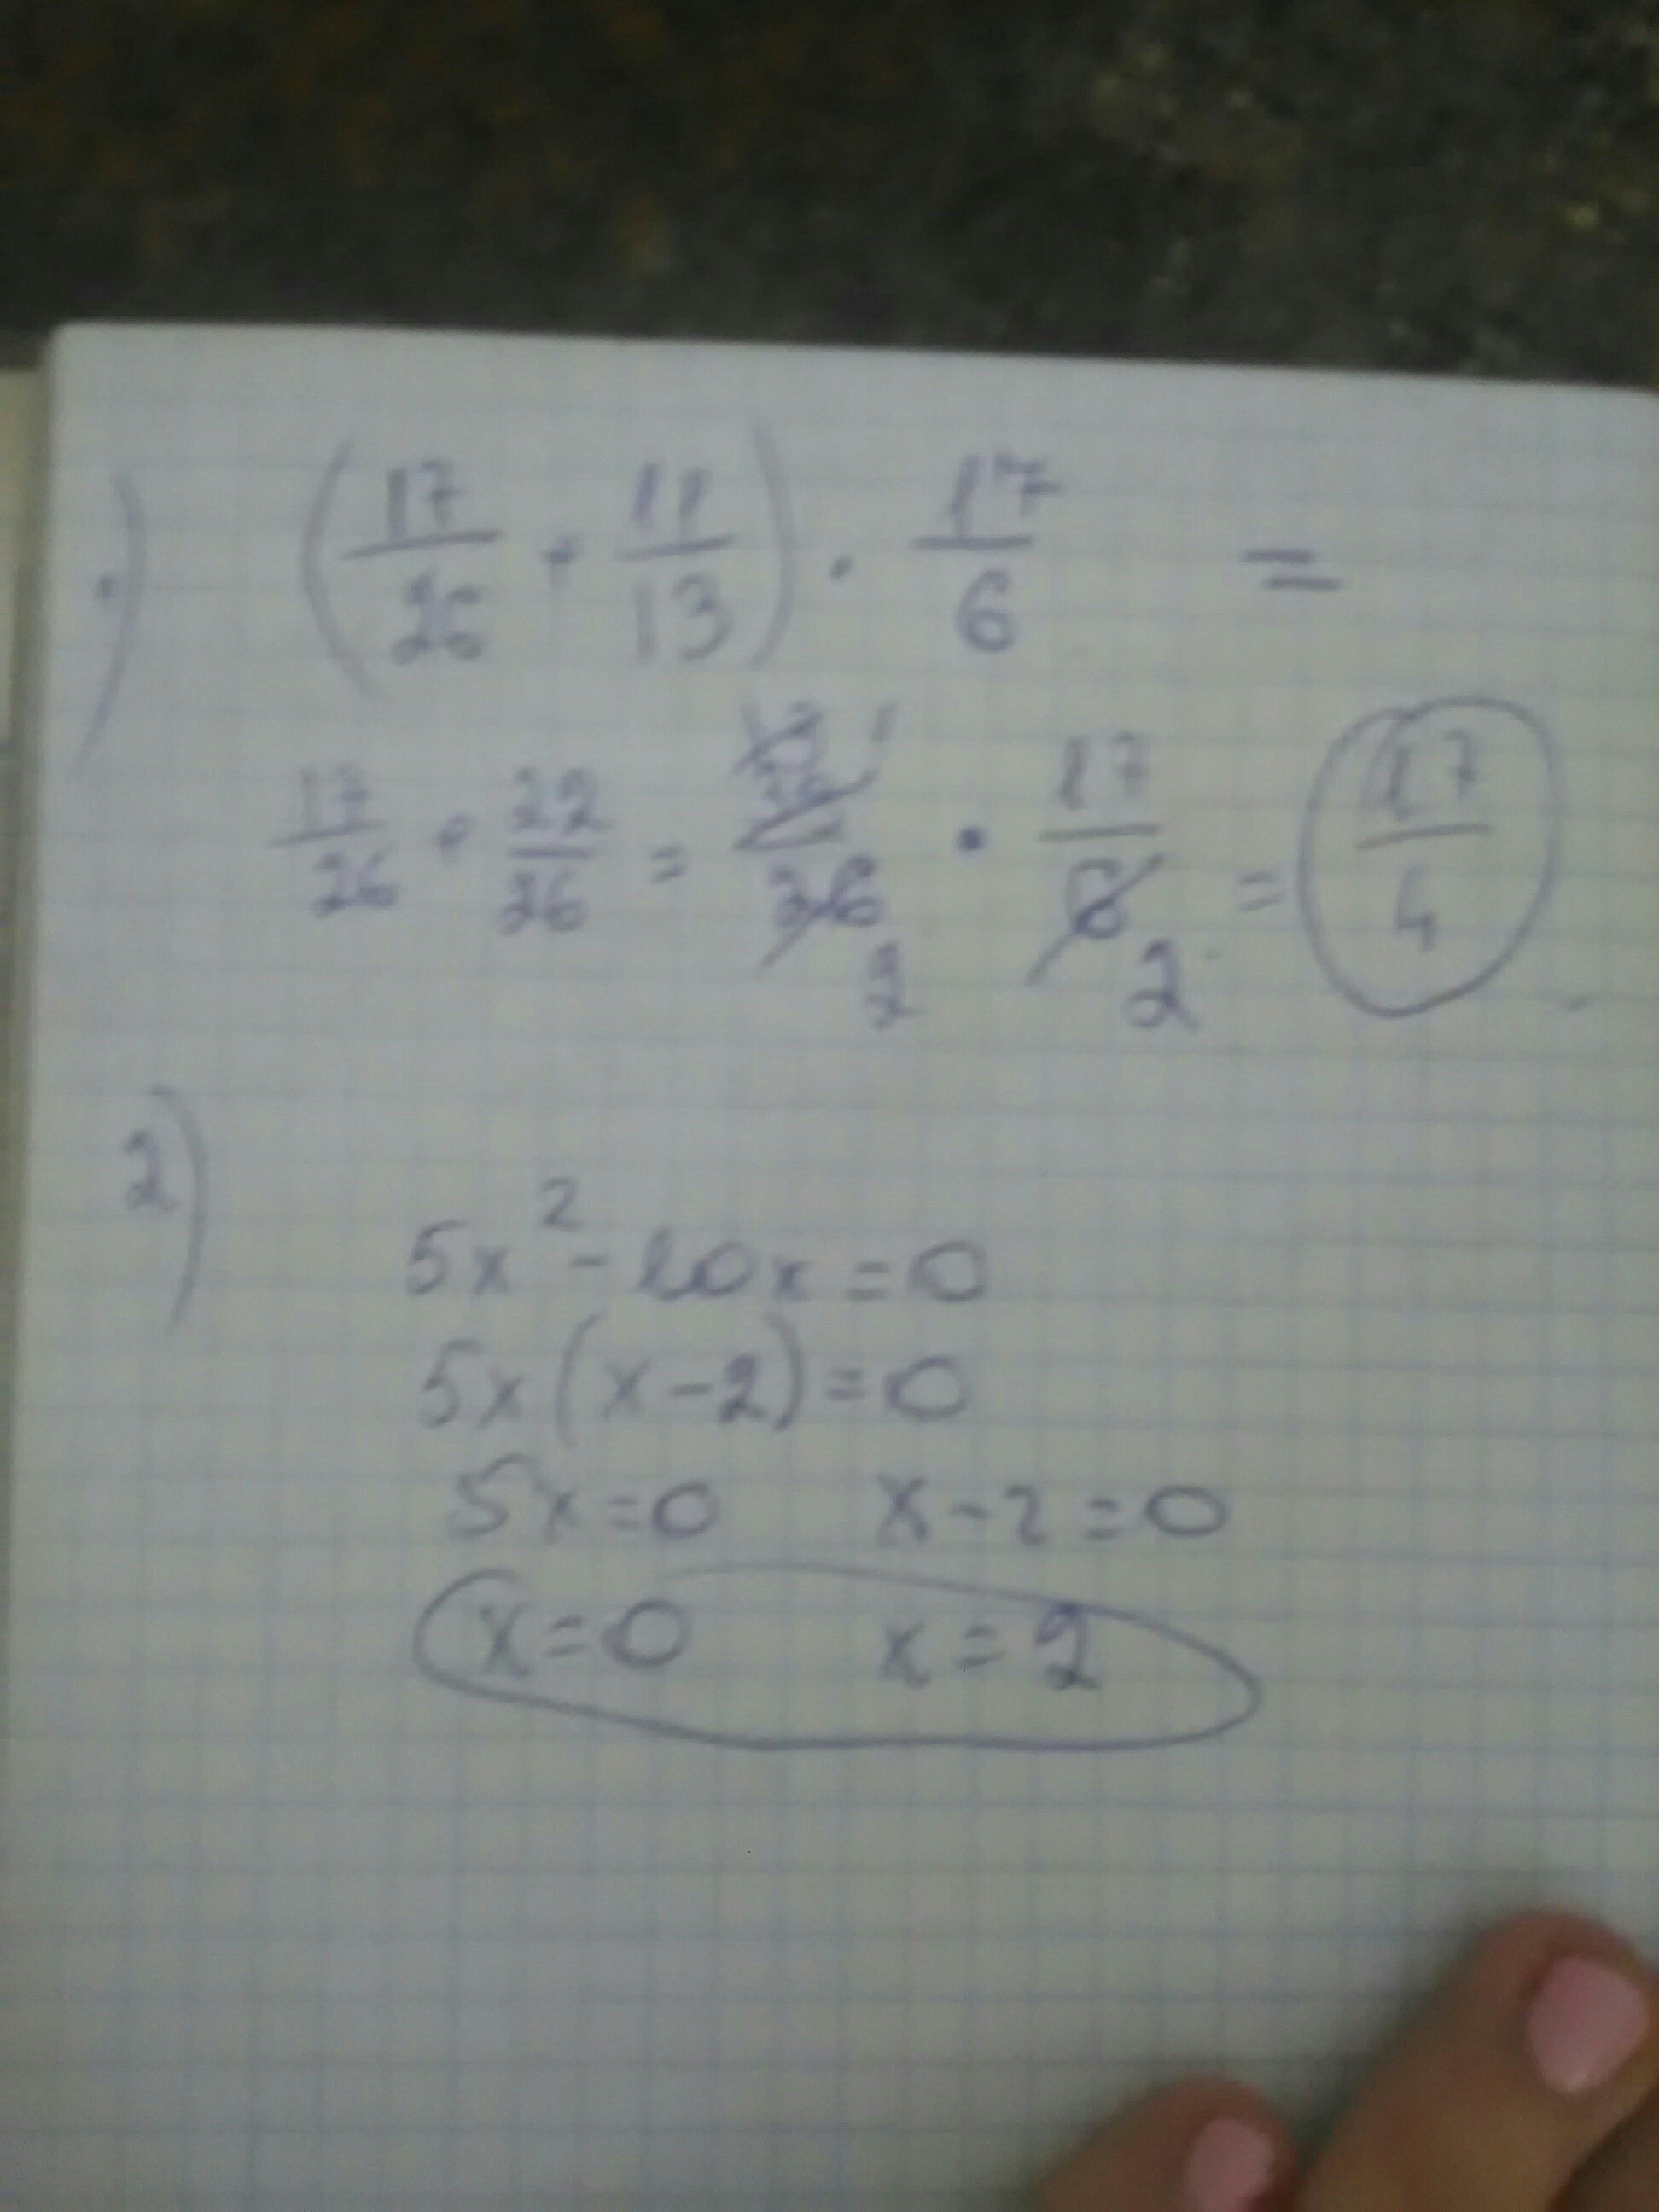 1) (17/26 + 11/13) · 17/6 =
17/26 + 22/26 = 39/26 · 17/6 = 17/4
13 1
2 2
2)
5x² - 10x = 0
5x(x - 2) = 0
5x = 0 x - 2 = 0
x = 0 x = 2